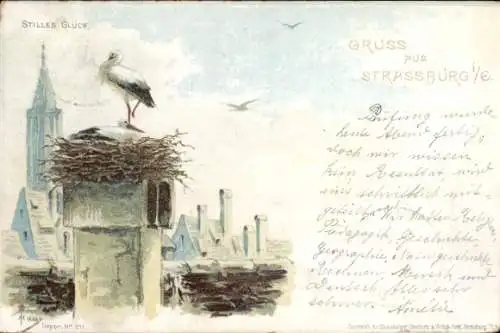 STILLES GLÜCK.
GRUSS
AUS
STRASSBURG i/E
Prüfung wurde
heute Abend fertig,
doch wir wissen
kein Resultat, wird
uns schriftlich mit-
geteilt. Wir hatten Relig.
Pädagogik, Geschichte
Geographie, Naturgeschichte
Rechnen, Deutsch. Alles sehr
schwer. Amélie